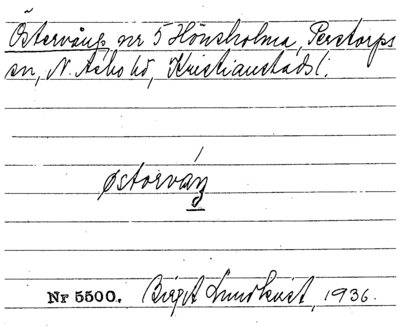 Östervång, nr 5 Hönsholma, Perstorps
sn, N. Åsbo hd, Kristianstads l.
østorváŋ
Nr 5500. Birgit Lundkvist, 1936.